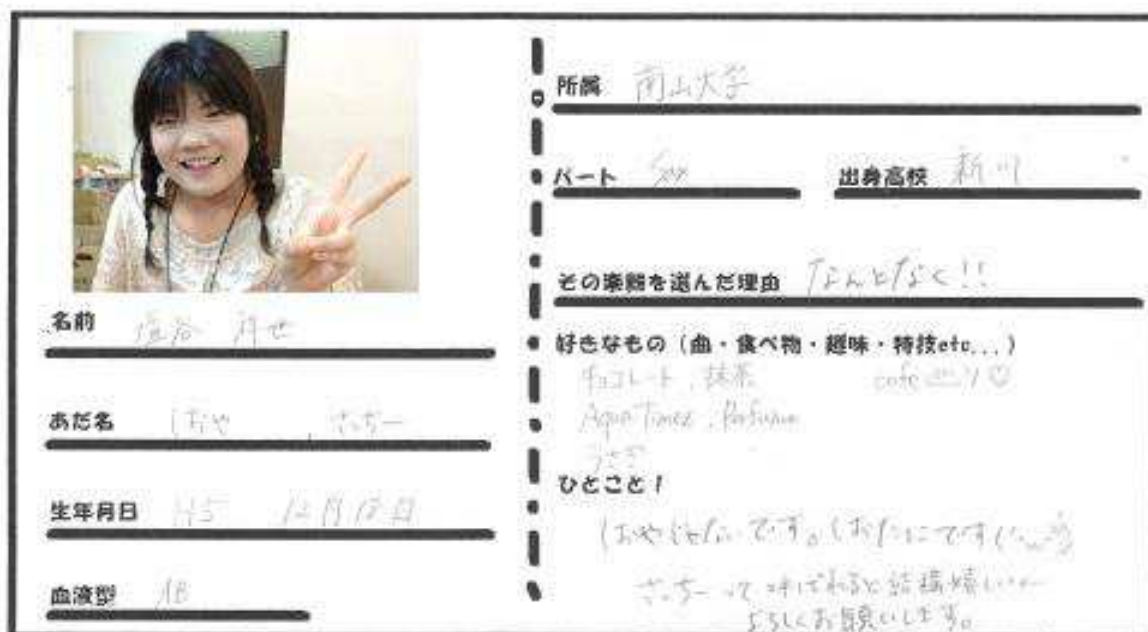 名前 塩谷
あだ名 しおや 、さっちー
生年月日 H5 12月18日
血液型 AB
所属 南山大学
パート
出身高校 新川
その楽器を選んだ理由 なんとなく!!
好きなもの（曲・食べ物・趣味・特技etc...）
チョコレート、抹茶 cafe
Aqua Timez、Perfume
うさぎ
ひとこと！
しおやじゃないです。しおたにです
さっちーって呼ばれると結構嬉しい
よろしくお願いします。